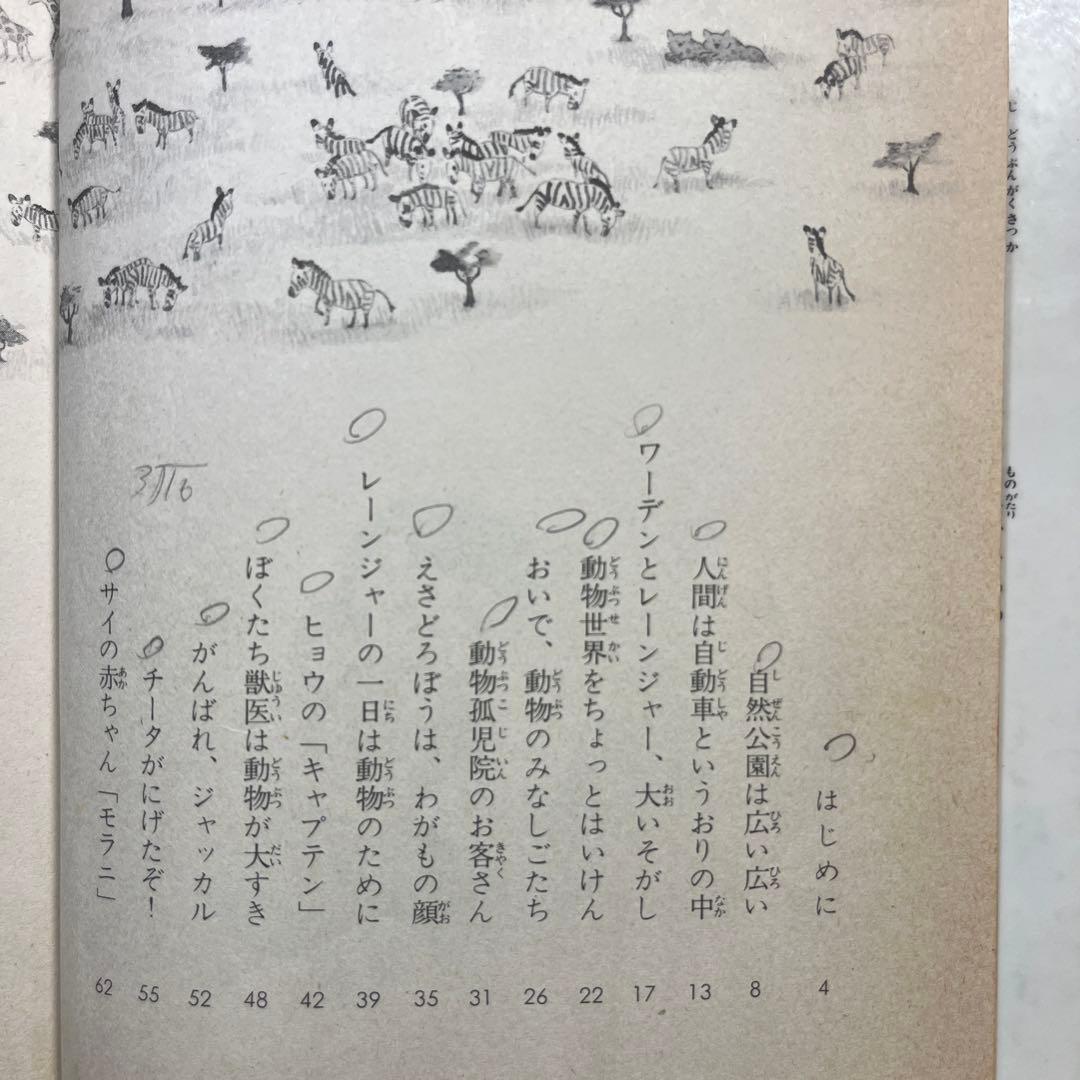 はじめに 4
自然公園は広い広い 8
人間は自動車というおりの中 13
ワーデンとレーンジャー、大いそがし 17
動物世界をちょっとはいけん 22
おいで、動物のみなしごたち 26
動物孤児院のお客さん 31
えさどろぼうは、わがもの顔 35
レーンジャーの一日は動物のために 39
ヒョウの「キャプテン」 42
ぼくたち獣医は動物が大すき 48
がんばれ、ジャッカル 52
チータがにげたぞ！ 55
サイの赤ちゃん「モラニ」 62